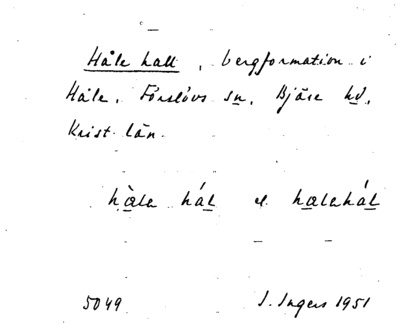 Håle hall, bergformation i
Håle, Förslövs sn, Bjäre hd,
Krist. län.
hæ̀la hál el. hælahál
5049 I. Ingers 1951